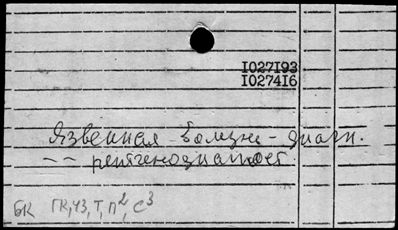 1027193
1027416
Язвенная болезнь - диагн.
-- рентгенодиагност.
БК ГК, ЧЗ, Т, П², С³